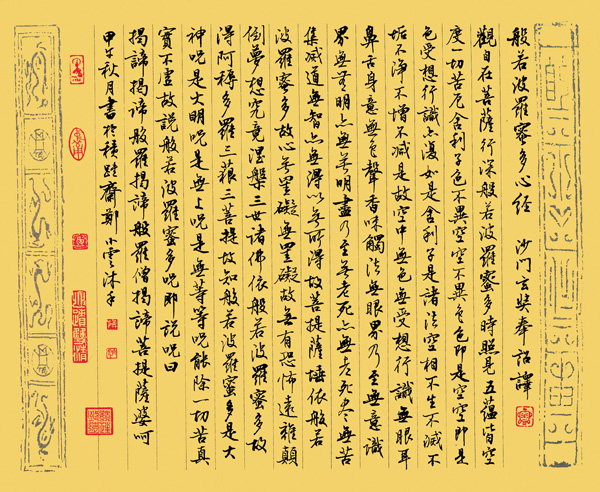 般若波羅蜜多心經 沙門玄奘奉詔譯
觀自在菩薩行深般若波羅蜜多時照見五蘊皆空
度一切苦厄舍利子色不異空空不異色色即是空空即是
色受想行識亦復如是舍利子是諸法空相不生不滅不
垢不淨不增不減是故空中無色無受想行識無眼耳
鼻舌身意無色聲香味觸法無眼界乃至無意識
界無無明亦無無明盡乃至無老死亦無老死盡無苦
集滅道無智亦無得以無所得故菩提薩埵依般若
波羅蜜多故心無罣礙無罣礙故無有恐怖遠離顛
倒夢想究竟涅槃三世諸佛依般若波羅蜜多故
得阿耨多羅三藐三菩提故知般若波羅蜜多是大
神咒是大明咒是無上咒是無等等咒能除一切苦真
實不虛故說般若波羅蜜多咒即說咒曰
揭諦揭諦般羅揭諦般羅僧揭諦菩提薩婆呵
甲午秋月書於積跬齋鄭小雲沐手